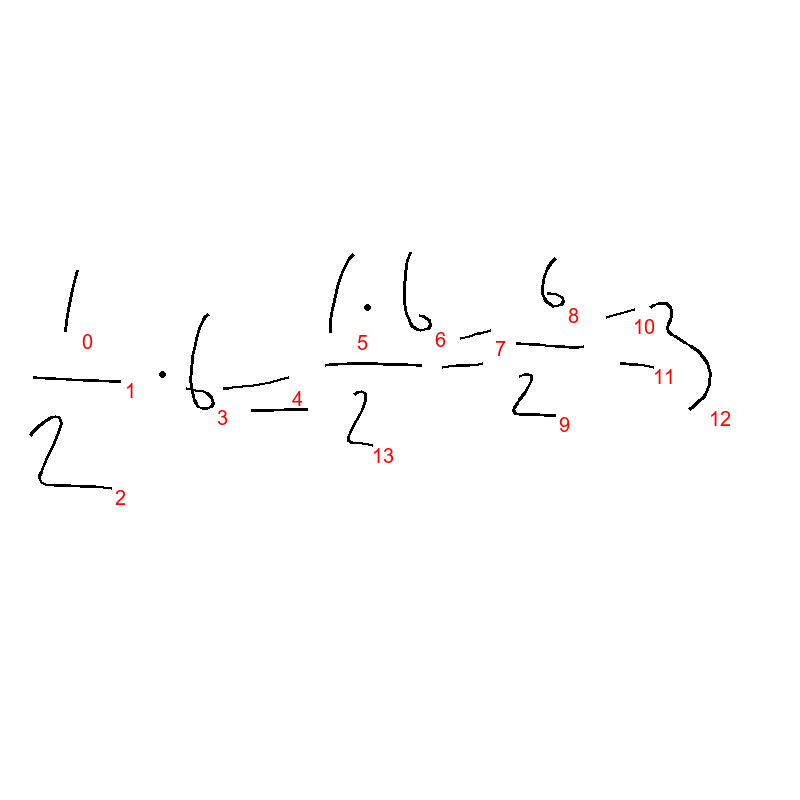 1/2 · 6 = 1·6/2 = 6/2 = 3
0 1 2 3 4 5 6 7 8 9 10 11 12 13